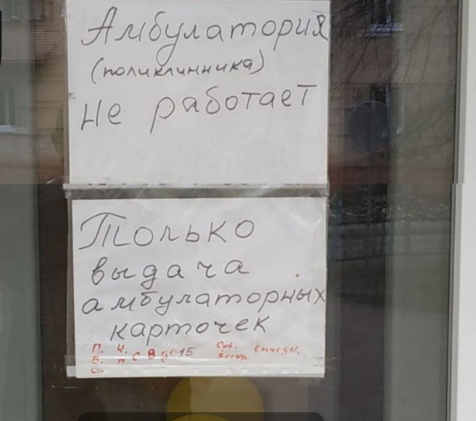 Амбулатория
(поликлинника)
не работает
Только
выдача
амбулаторных
карточек